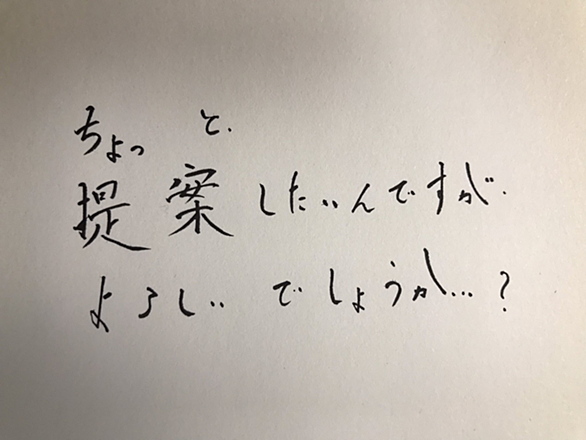 ちょっと.
提案したいんですが.
よろしいでしょうか…?